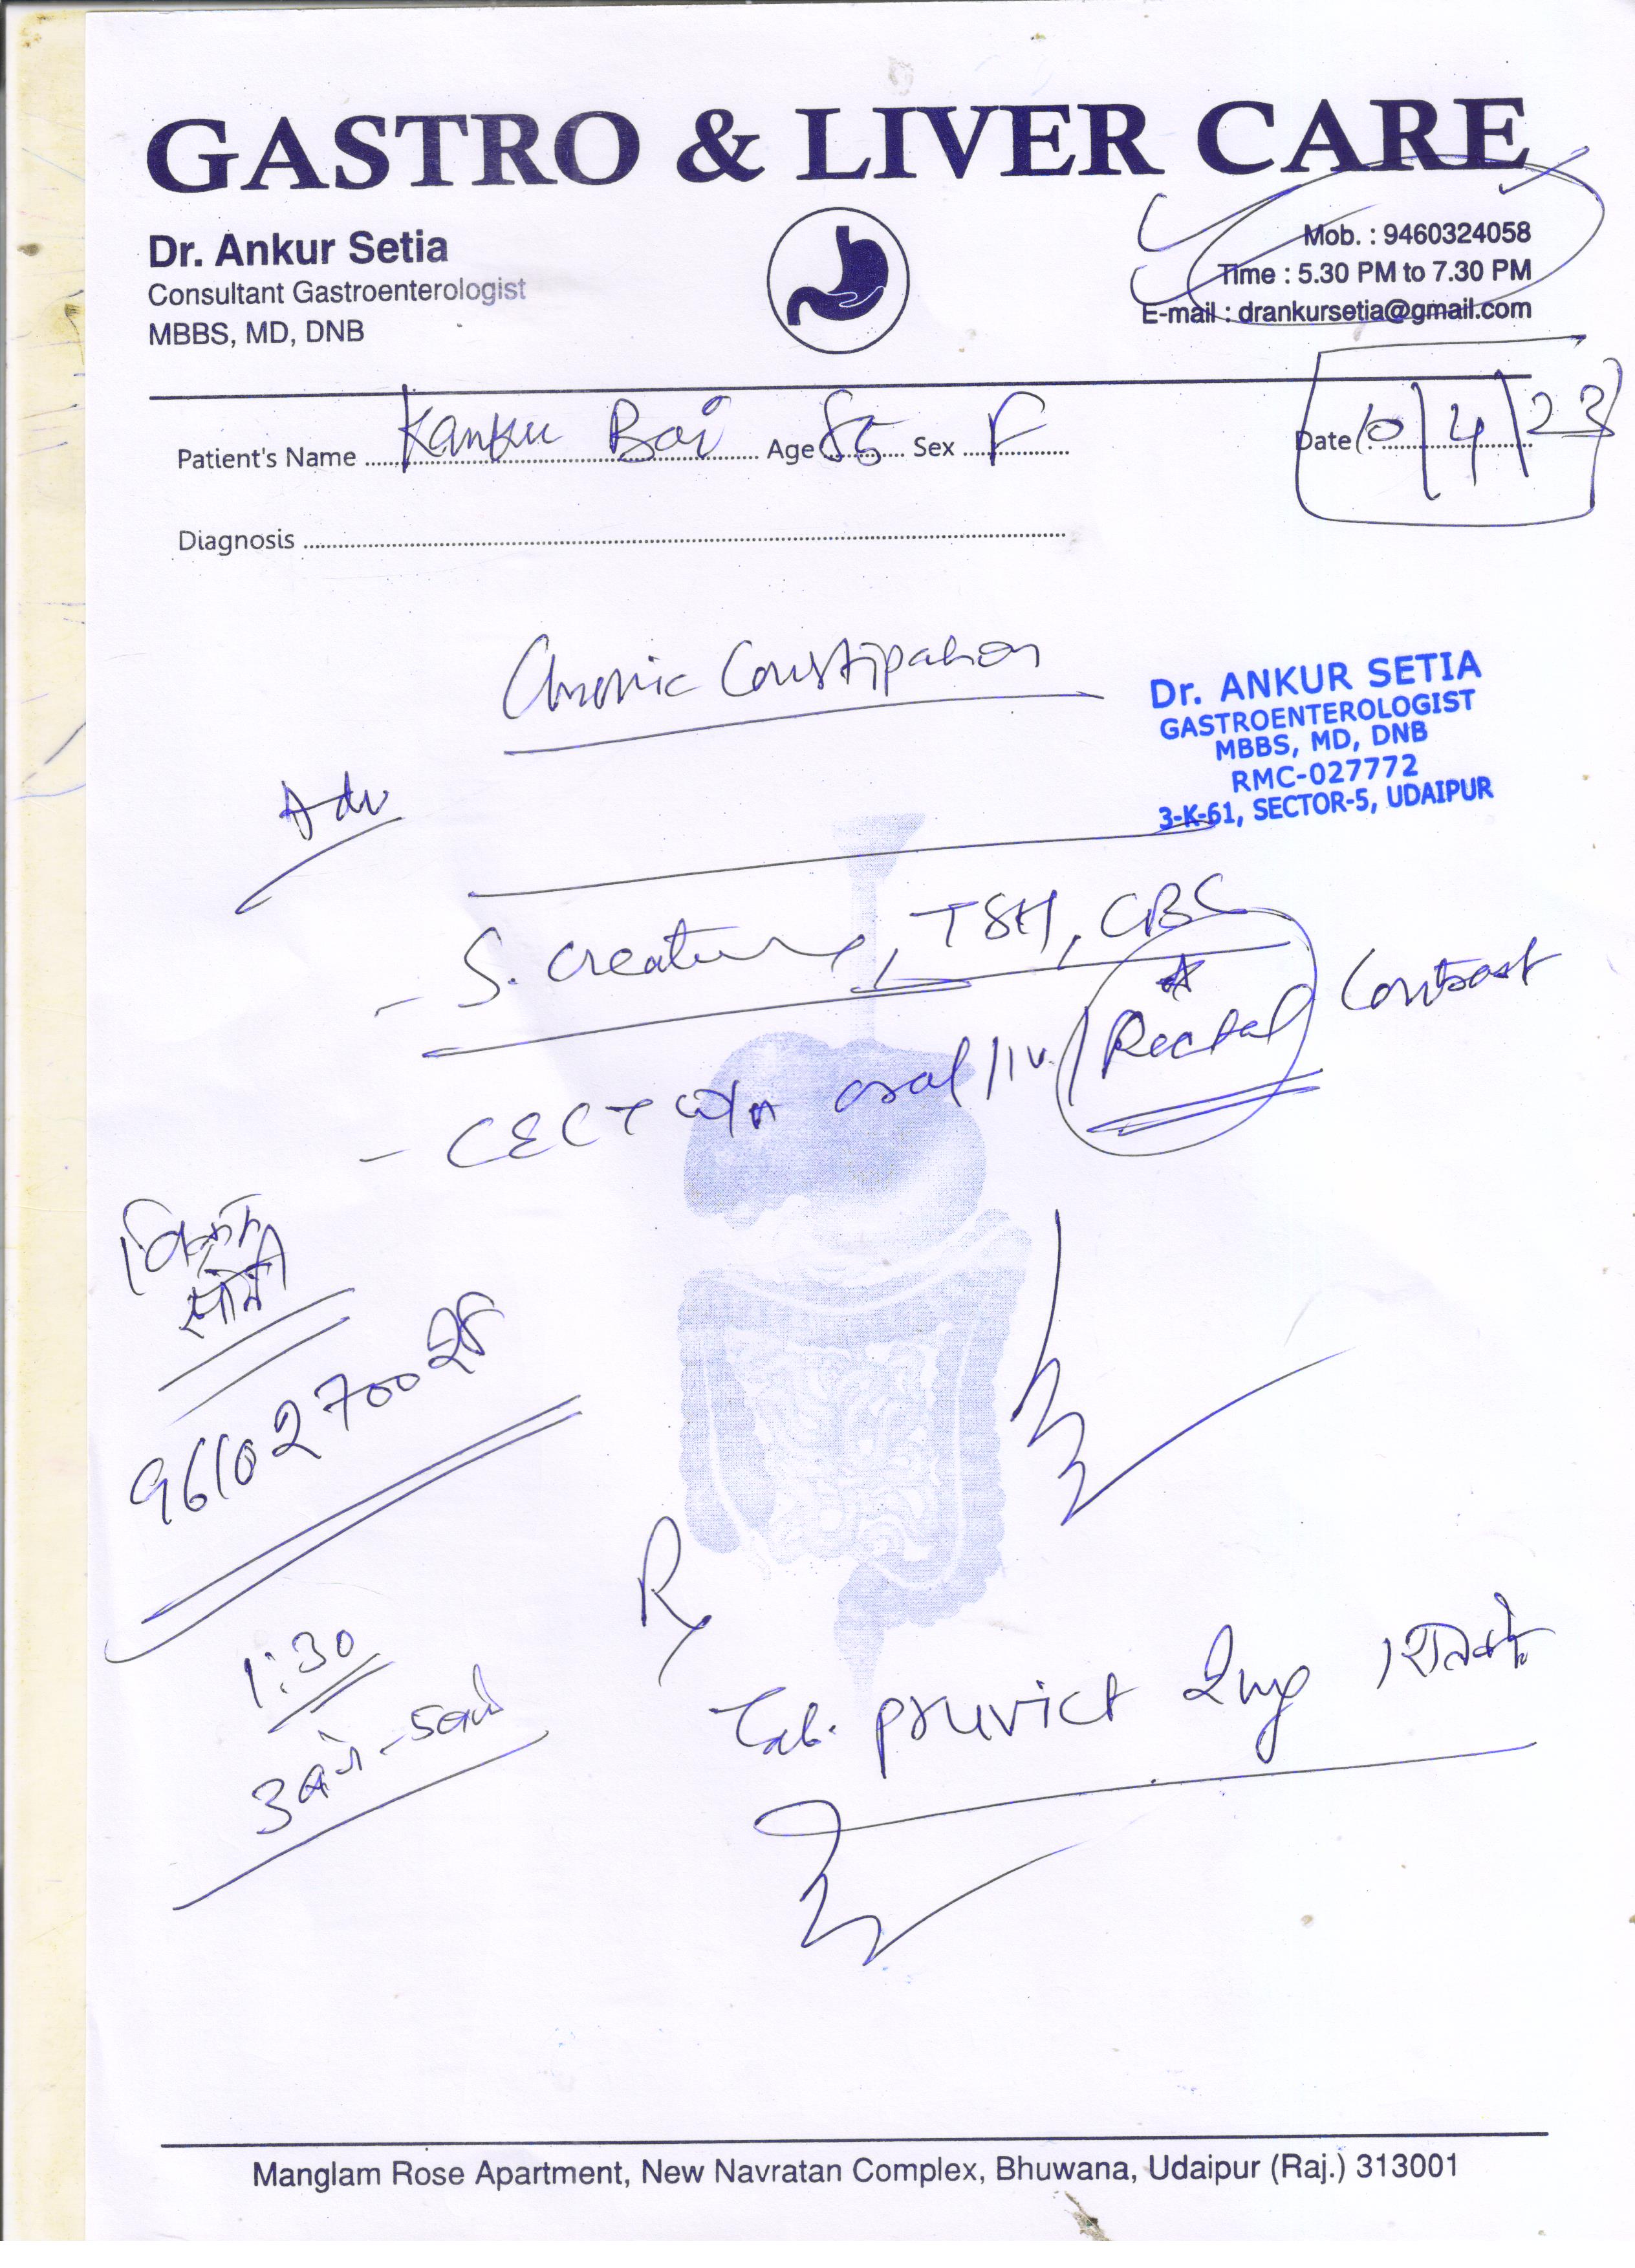 GASTRO & LIVER CARE
Dr. Ankur Setia
Consultant Gastroenterologist
MBBS, MD, DNB
Mob. : 9460324058
Time : 5.30 PM to 7.30 PM
E-mail : drankursetia@gmail.com
Patient's Name Kanku Bai Age 85 Sex F
Date 10/4/23
Diagnosis
Chronic Constipation
Dr. ANKUR SETIA
GASTROENTEROLOGIST
MBBS, MD, DNB
RMC-027772
3-K-61, SECTOR-5, UDAIPUR
Adv
- S. Creatinine, TSH, CBC
- CECT w/A oral/IV/Rectal Contrast
9610270028
1:30
3 बजे - 5 बजे
Rx
Tab. pruvict 2mg
Manglam Rose Apartment, New Navratan Complex, Bhuwana, Udaipur (Raj.) 313001